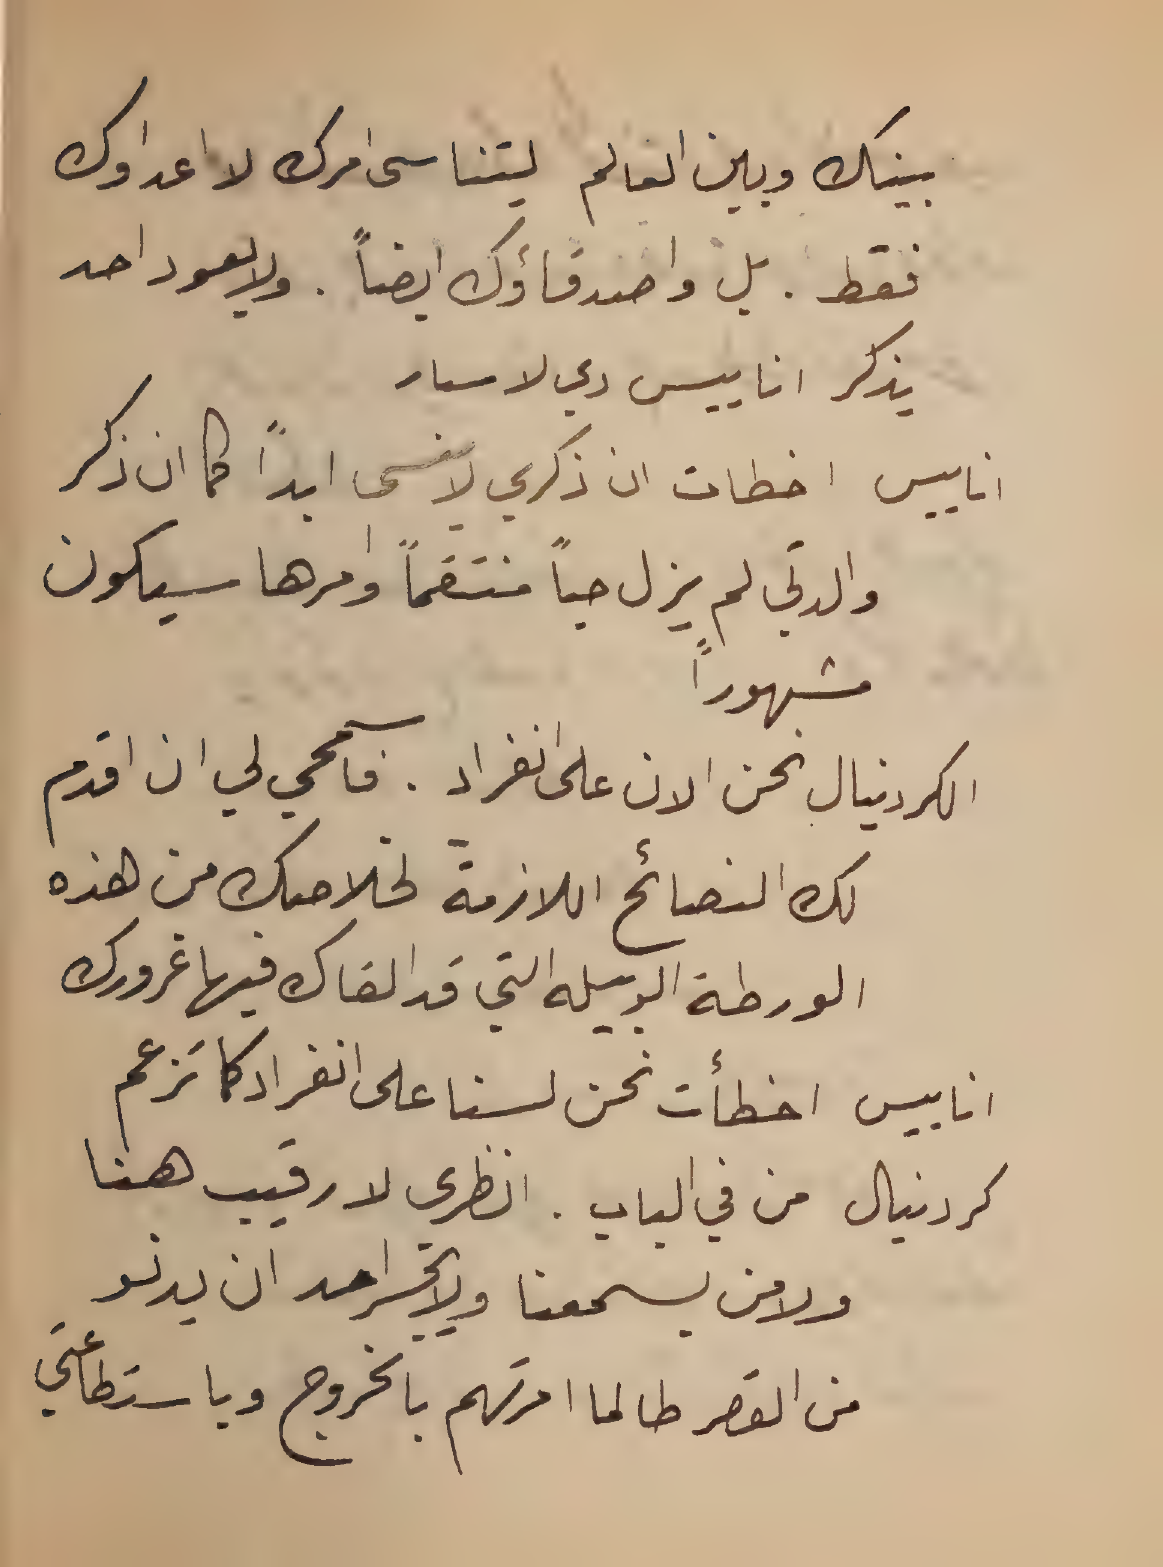 بينك وبين العالم ليتناسى امرك لا اعداوك
فقط . بل واصدقاؤك ايضاً . ولا يعود احد
يذكر اناييس دي لا سار
اناييس اخطات ان ذكري لا ينسى ابداً كما ان ذكر
والدتي لم يزل حياً منتقماً وامرها سيكون
مشهوراً
الكردينال نحن الان على انفراد . فاسمحي لي ان اقدم
لك النصائح اللازمة لخلاصك من هذه
الورطة الوبيله التي قد القاك فيها غرورك
اناييس اخطأت نحن لسنا على انفراد كما تزعم
كردينال من في الباب . انظري لا رقيب هنا
ولا من يسمعنا ولا يتجسر احد ان يدنو
من القصر طالما امرتهم بالخروج وباستطاعتي